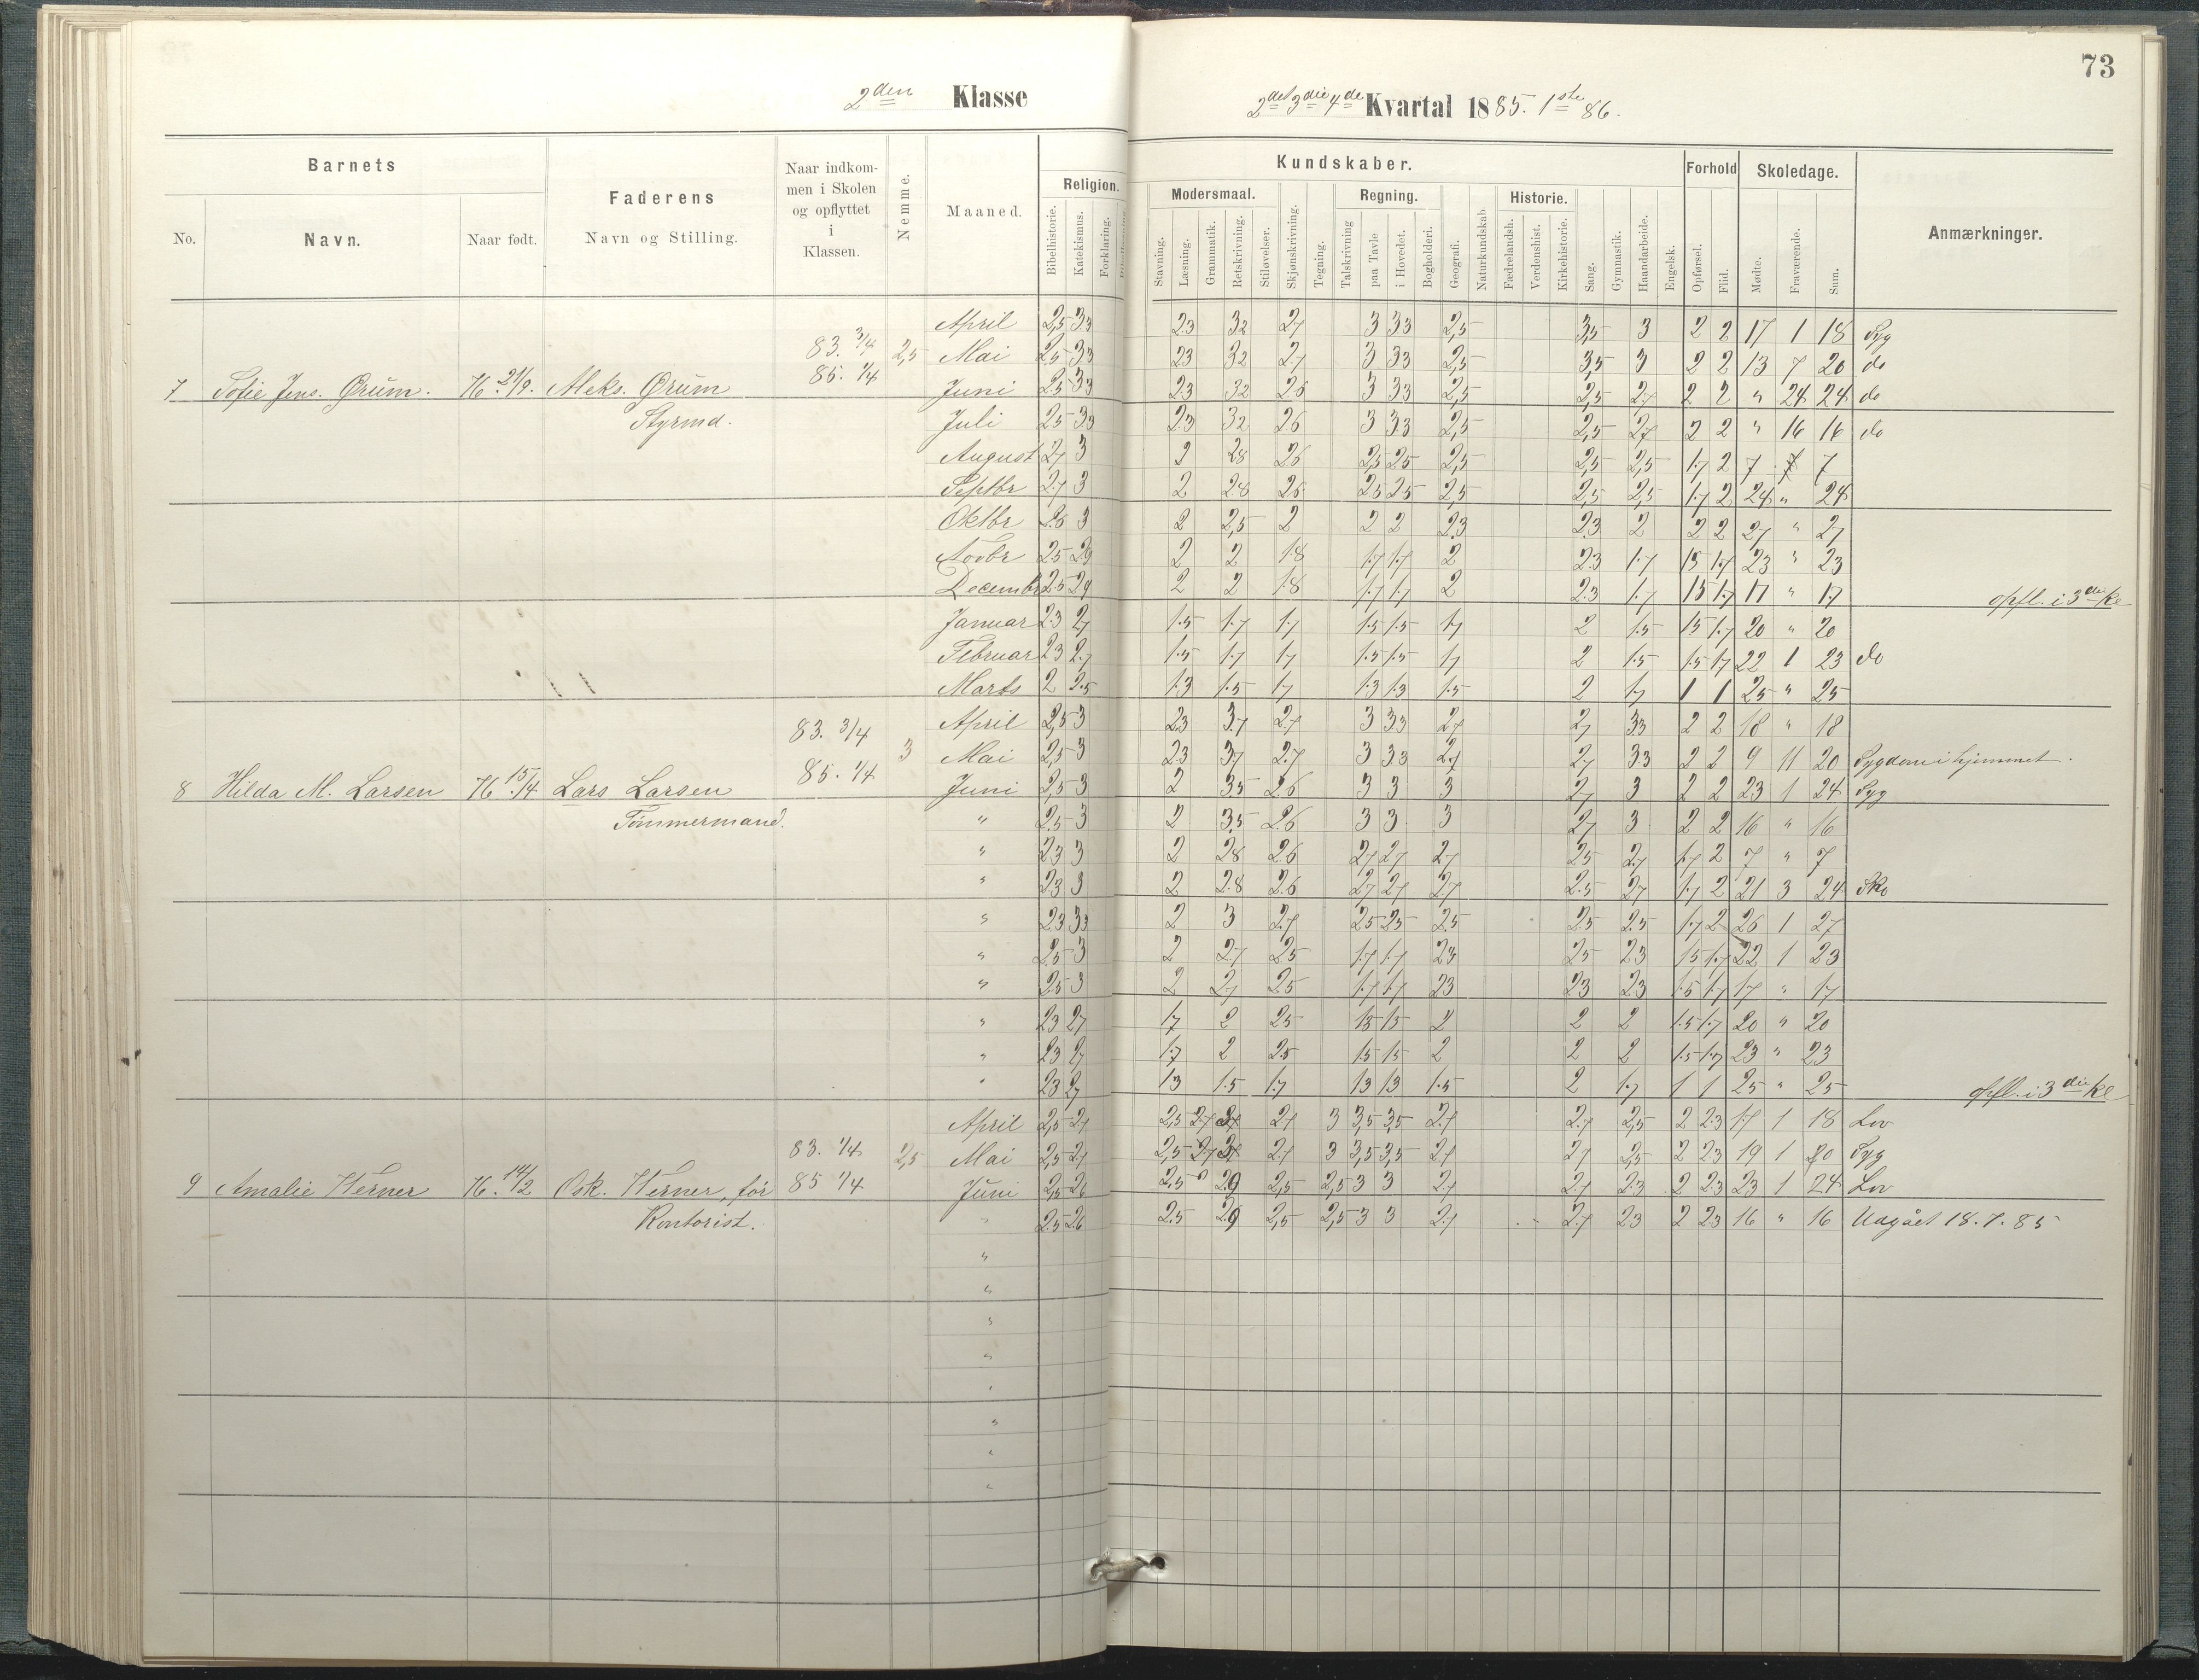 73
2den Klasse
2det 3die 4de Kvartal 1885. 1ste 86.
Barnets
Faderens
Navn og Stilling.
Naar indkom-
men i Skolen
og opflyttet
i
Klassen.
Nemme.
Maaned.
Religion.
Kundskaber.
Forhold
Skoledage.
Anmærkninger.
No.
Navn.
Naar født.
Bibelhistorie.
Katekismus.
Forklaring.
Modersmaal.
Regning.
Historie.
Stavning.
Læsning.
Grammatik.
Retskrivning.
Stiløvelser.
Skjønskrivning.
Tegning.
Talskrivning
paa Tavle
i Hovedet.
Bogholderi.
Geografi.
Naturkundskab.
Fædrelandsh.
Verdenshist.
Kirkehistorie.
Sang.
Gymnastik.
Haandarbeide.
Engelsk.
Opførsel.
Flid.
Mødte.
Fraværende.
Sum.
7 Sofie Jens. Ørum. 76. 21/9. Aleks. Ørum
Styrmd.
83. 3/4
85. 1/4
2,5
April 2,5 3.3 2.3 3.2 2.7 3 3.3 2,5 3,5 3 2 2 17 1 18 Syg
Mai 2.5 3.3 2.3 3.2 2.7 3 3.3 2,5 3,5 3 2 2 13 7 20 do
Juni 2.5 3.3 2.3 3.2 2.6 3 3.3 2,5 2,5 2.7 2 2 " 24 24 do
Juli 2.5 3.3 2.3 3.2 2.6 3 3.3 2,5 2,5 2.7 2 2 " 16 16 do
August 2.7 3 2 2.8 2.6 2.5 2.5 2,5 2,5 2,5 1.7 2 7 7 7
Septbr 2.7 3 2 2.8 2.6 2.5 2.5 2,5 2,5 2,5 1.7 2 24 " 24
Oktbr 2.6 3 2 2,5 2 2 2 2.3 2.3 2 2 2 27 " 27
Novbr 2.5 2.9 2 2 1.8 1.7 1.7 2 2.3 1.7 1.5 1.7 23 " 23
Decembr 2.5 2.9 2 2 1.8 1.7 1.7 2 2.3 1.7 1.5 1.7 17 " 17
opfl. i 3die Kl
Januar 2.3 2.7 1.5 1.7 1.7 1.5 1.5 1.7 2 1.5 1.5 1.7 20 " 20
Februar 2.3 2.7 1.5 1.7 1.7 1.5 1.5 1.7 2 1.5 1.5 1.7 22 1 23 do
Marts 2 2.5 1.3 1.5 1.7 1.3 1.3 1.5 2 1.7 1 1 25 " 25
8 Hilda M. Larsen 76 15/4 Lars Larsen
Tømmermand.
83. 3/4
85. 1/4
3
April 2,5 3 2.3 3.7 2.7 3 3.3 2.7 2.7 3.3 2 2 18 " 18
Mai 2,5 3 2.3 3.7 2.7 3 3.3 2.7 2.7 3.3 2 2 9 11 20 Sygdom i hjemmet.
Juni 2,5 3 2 3.5 2.6 3 3 3 2.7 3 2 2 23 1 24 Syg
" 2.5 3 2 3.5 2.6 3 3 3 2.7 3 2 2 16 " 16
" 2.3 3 2 2.8 2.6 2.7 2.7 2.7 2.5 2.7 1.7 2 7 " 7
" 2.3 3 2 2.8 2.6 2.7 2.7 2.7 2.5 2.7 1.7 2 21 3 24 Sko
" 2.3 3.3 2 3 2.7 2.5 2.5 2.5 2.5 2.5 1.7 2 26 1 27
" 2.5 3 2 2.7 2.5 1.7 1.7 2.3 2.5 2.3 1.5 1.7 22 1 23
" 2.5 3 2 2.7 2.5 1.7 1.7 2.3 2.3 2.3 1.5 1.7 17 " 17
" 2.3 2.7 1.7 2 2.5 1.5 1.5 2 2 2 1.5 1.7 20 " 20
" 2.3 2.7 1.7 2 2.5 1.5 1.5 2 2 2 1.5 1.7 23 " 23
" 2.3 2.7 1.3 1.5 1.7 1.3 1.3 1.5 2 1.7 1 1 25 " 25
opfl. i 3die Kl
9 Amalie Werner 76. 14/2 Osk. Werner, før
Kontorist.
83. 1/4
85 1/4
2,5
April 2,5 2.7 2,5 2.7 2.7 3 3,5 3,5 2.7 2.7 2,5 2 2.3 17 1 18 Lov
Mai 2,5 2.7 2,5 2.7 2.7 3 3,5 3,5 2.7 2.7 2,5 2 2.3 19 1 20 Syg
Juni 2,5 2.6 2.5 2.9 2,5 2,5 3 3 2.7 2.7 2.3 2 2.3 23 1 24 Lov
" 2.5 2.6 2.5 2.9 2,5 2,5 3 3 2.7 2.7 2.3 2 2.3 16 " 16 Udgået 18.7.85
"
"
"
"
"
"
"
"